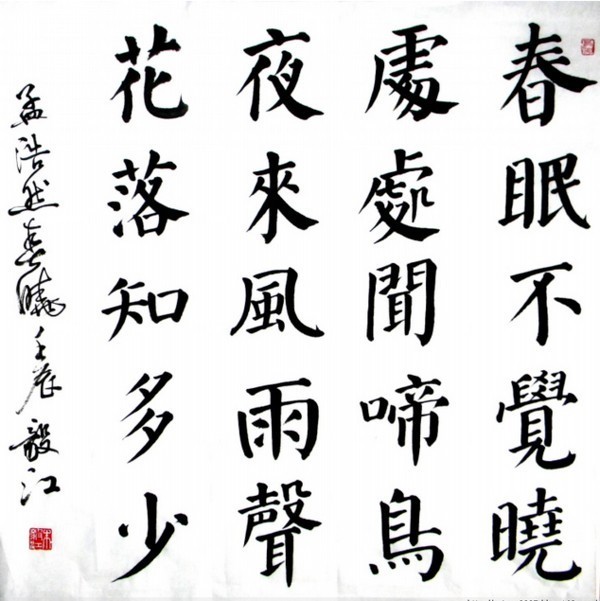 春眠不覺曉
處處聞啼鳥
夜來風雨聲
花落知多少
孟浩然春曉壬辰毅江